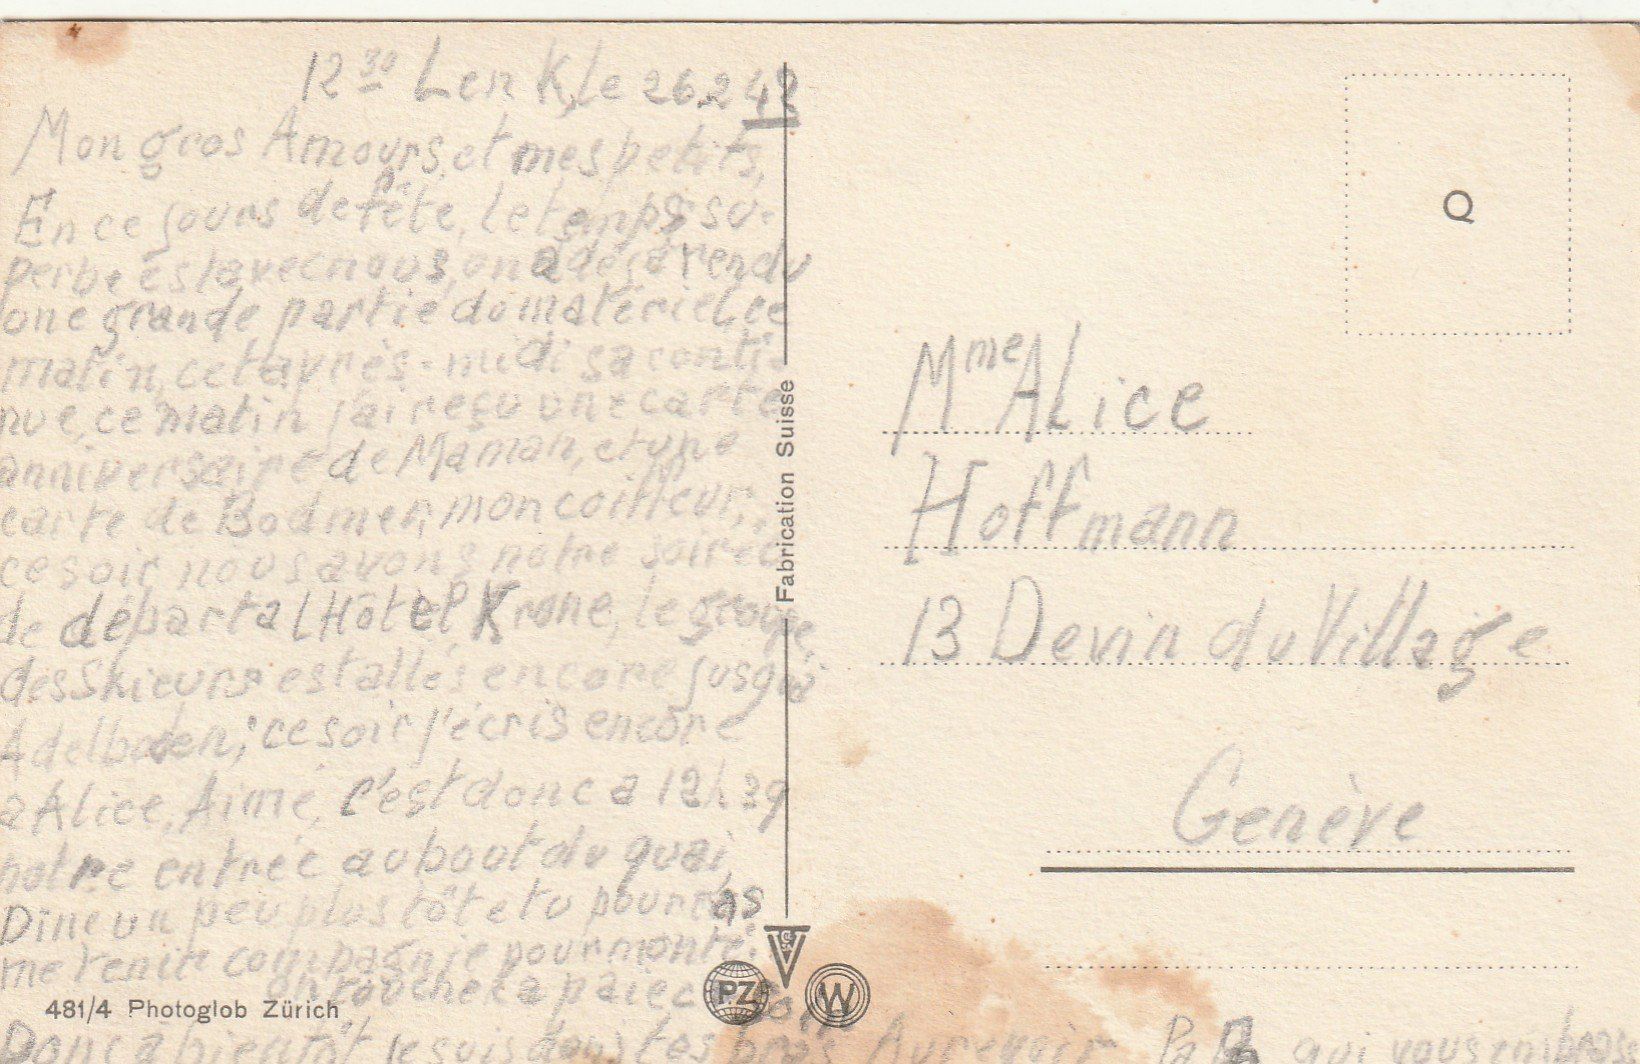 12 30 Lenk, le 26.2 42
Mon gros Amours, et mes petits,
En ce jours de fête, le temps su-
perbe est avec nous, on a déjà rendu
une grande partie du matériel ce
matin, cet après-midi sa conti-
nue, ce matin j'ai reçu une carte
anniversaire de Maman, et une
carte de Bodmer, mon coiffeur,
ce soir nous avons notre soirée
de départ a l Hôtel Krone, le groupe
des Skieurs est allés encore jusqu'à
Adelboden, ce soir j'écris encore
a Alice, Aimé, c'est donc a 12h 39
notre entrée au bout du quai,
Dine un peu plus tôt et tu pourras
me tenir compagnie pour
on touchera la paie ce soir
Donc à bientôt je suis dans tes bras Au revoir Pa qui vous embrasse
Fabrication Suisse
PZ
W
481/4 Photoglob Zürich
Q
Mme ALice
Hoffmann
13 Devin du Village
Genève